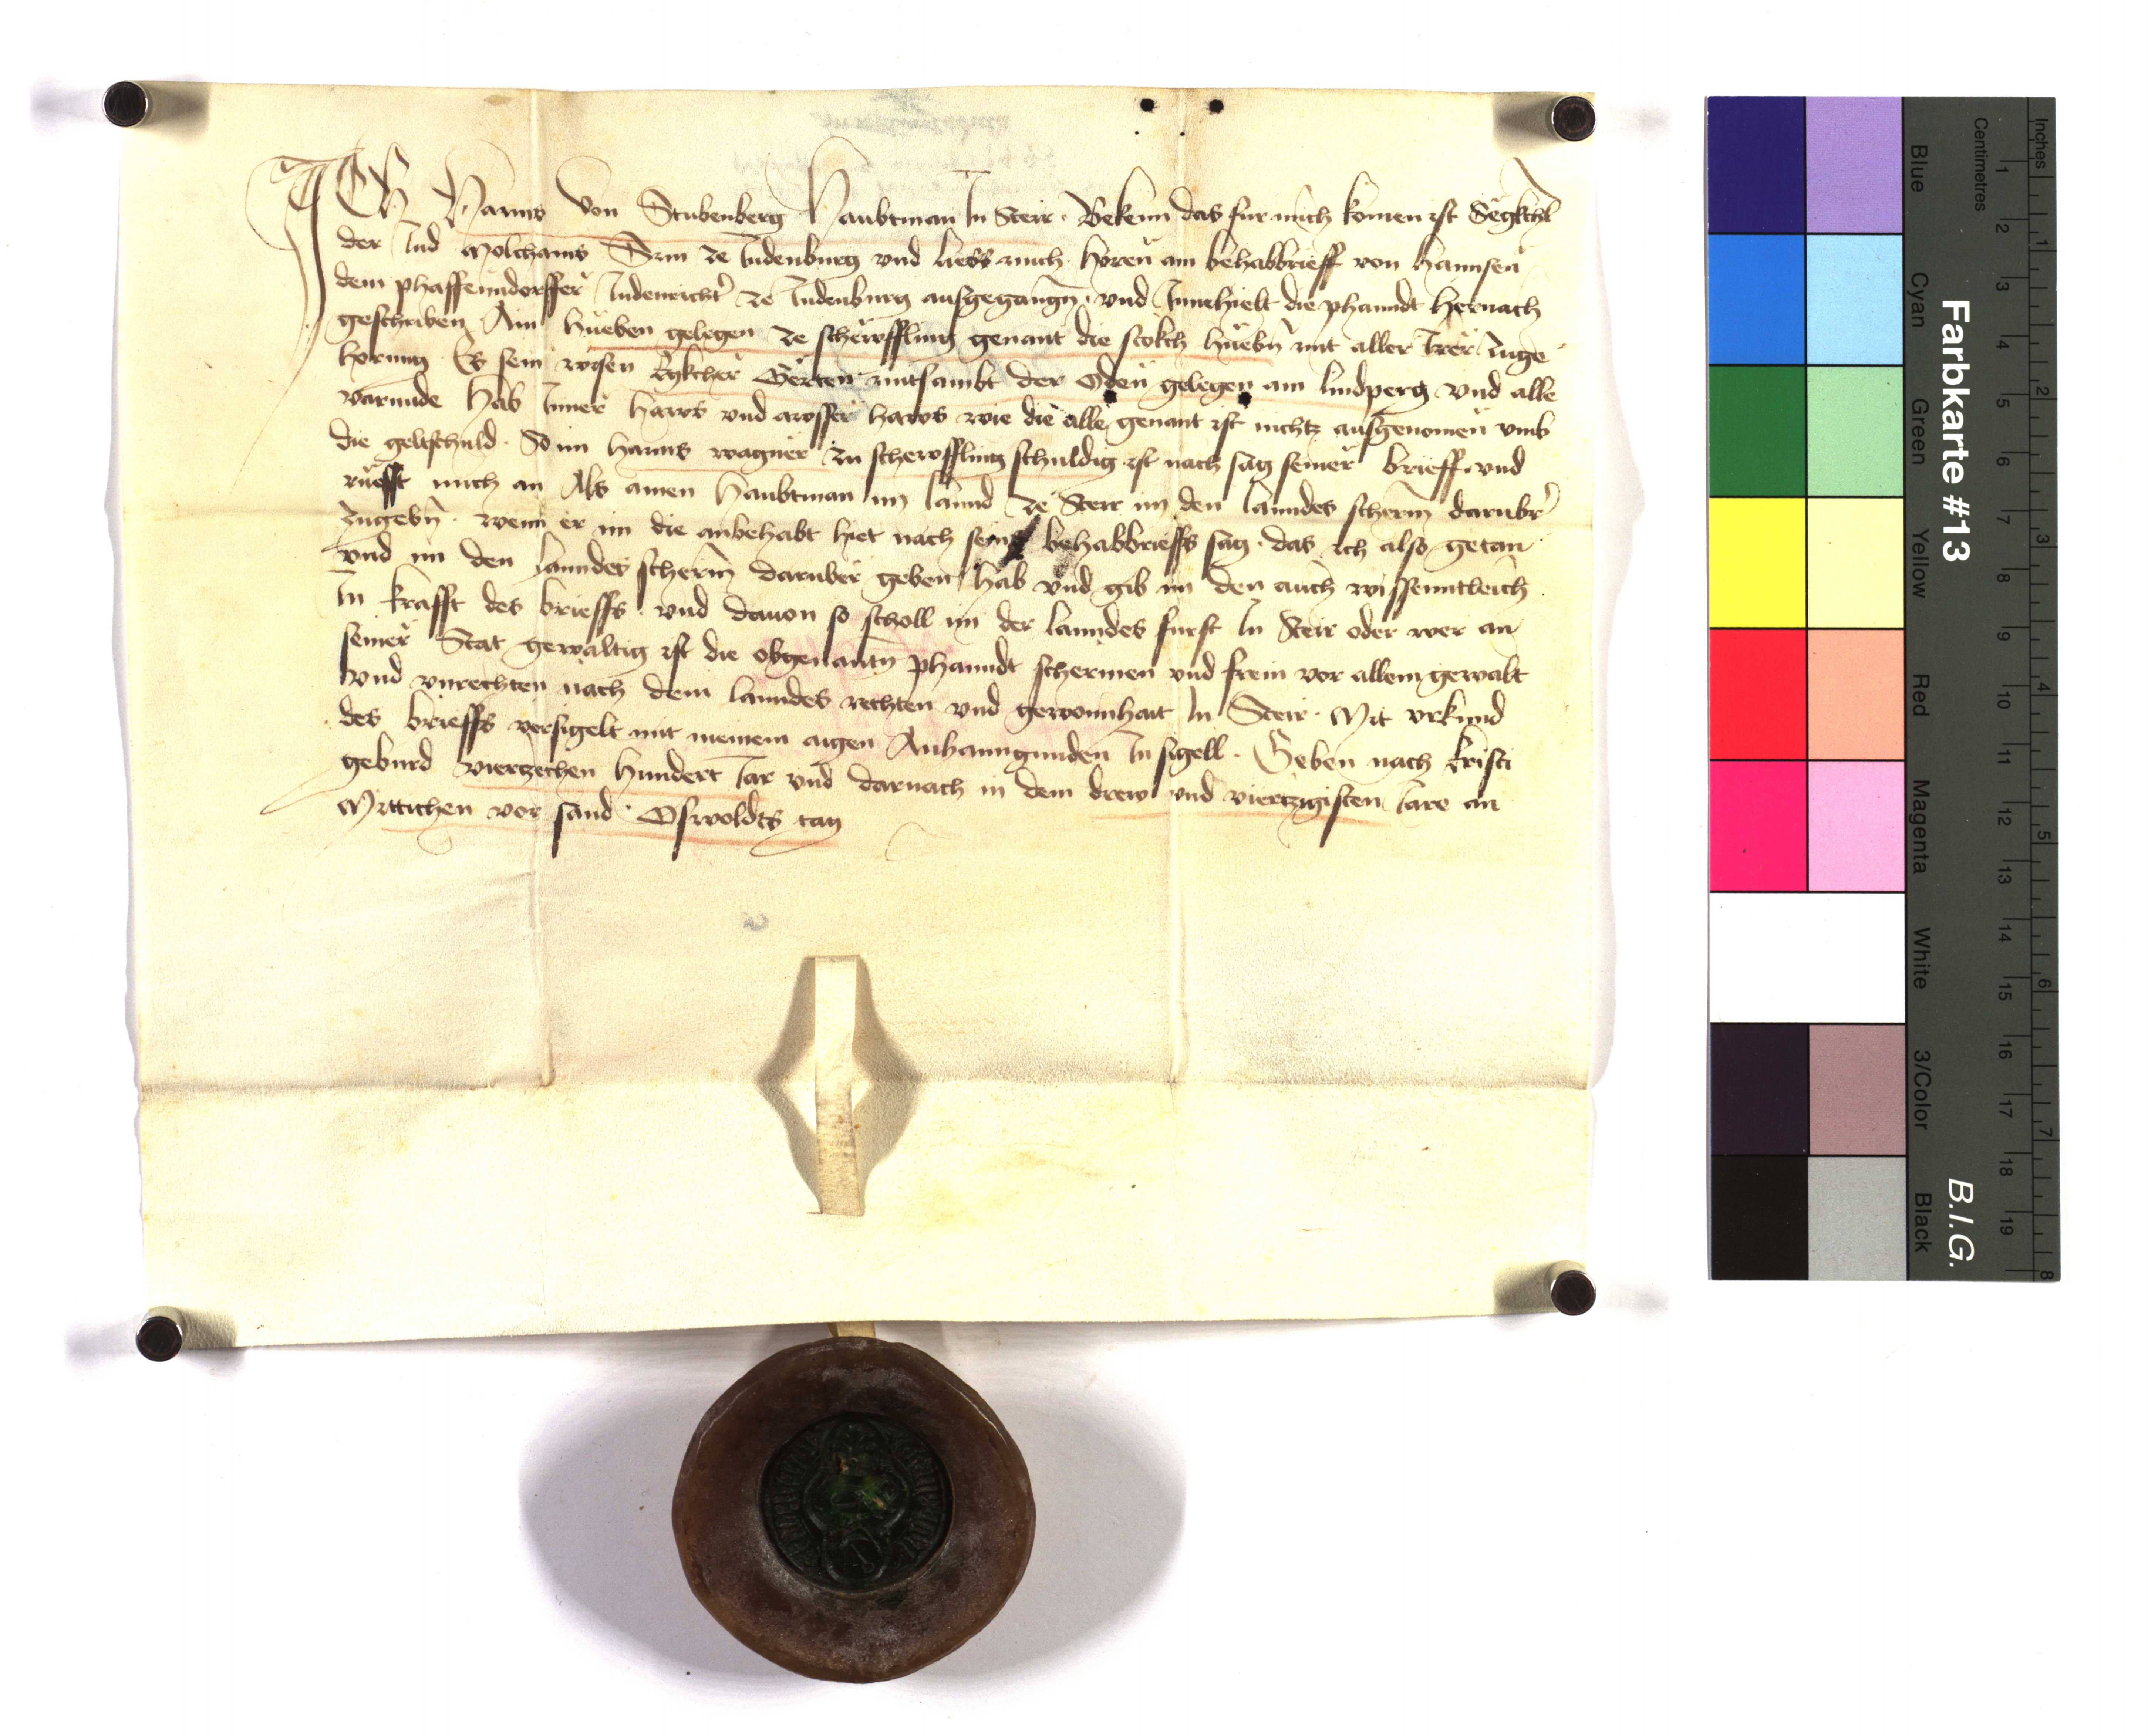 ICH Hanns von Stubenberg Haubtman In Steir · Bekenn das fur mich komen ist Sëgkchl
der Iud Molchams Sun ze Iudenburg vnd liess mich horen ain behabbrieff von Hannsen
dem phaffenndorffer Iudenricht' ze Iudenburg ausgegangn̄ · vnd Innehielt die phanndt hernach
geschriben Ain hueben gelegen ze schëwffling genant die stokch huebn̄ mit aller Irer Zuge
horung Es sein wisen Ekcher Gerten mitsambt der Oden gelegen am lindperg vnd alle
varunde hab Inner haws vnd awsser haws wie die alle genant ist nichtz ausgenomen vmb
die geltschuld · So im Hanns wagner zu schewffling schuldig ist nach sag seiner brieff · vnd
rüefft mich an Als ainen Haubtman im lannd ze Steir im den lanndes scherm̄ darubr'
zugebn̄ · wenn er im die anbehabt hiet nach seins behabbrieffs sag · das ich also getan
vnd im den lanndes scherm̄ daruber geben hab vnd gib im den auch wissenntleich
In krafft des brieffs · vnd dauon so scholl im der lanndes furst In Steir oder wer an
seiner Stat gewaltig ist die obgenantn̄ phanndt schermen vnd frein vor allem gewalt
vnd vnrechten nach dem lanndes rechten vnd gewonnhait In Steir · Mit vrkund
des brieffs versigelt mit meinem aigen Anhanngunden Insigell · Geben nach kristi
geburd vierzechen hundert Iar vnd darnach in dem drew vnd viertzigisten Iare an
Mittichen vor sand Oswoldts tag
Farbkarte #13
B.I.G.
Inches
Centimetres
1 2 3 4 5 6 7 8
1 2 3 4 5 6 7 8 9 10 11 12 13 14 15 16 17 18 19
Blue
Cyan
Green
Yellow
Red
Magenta
White
3/Color
Black